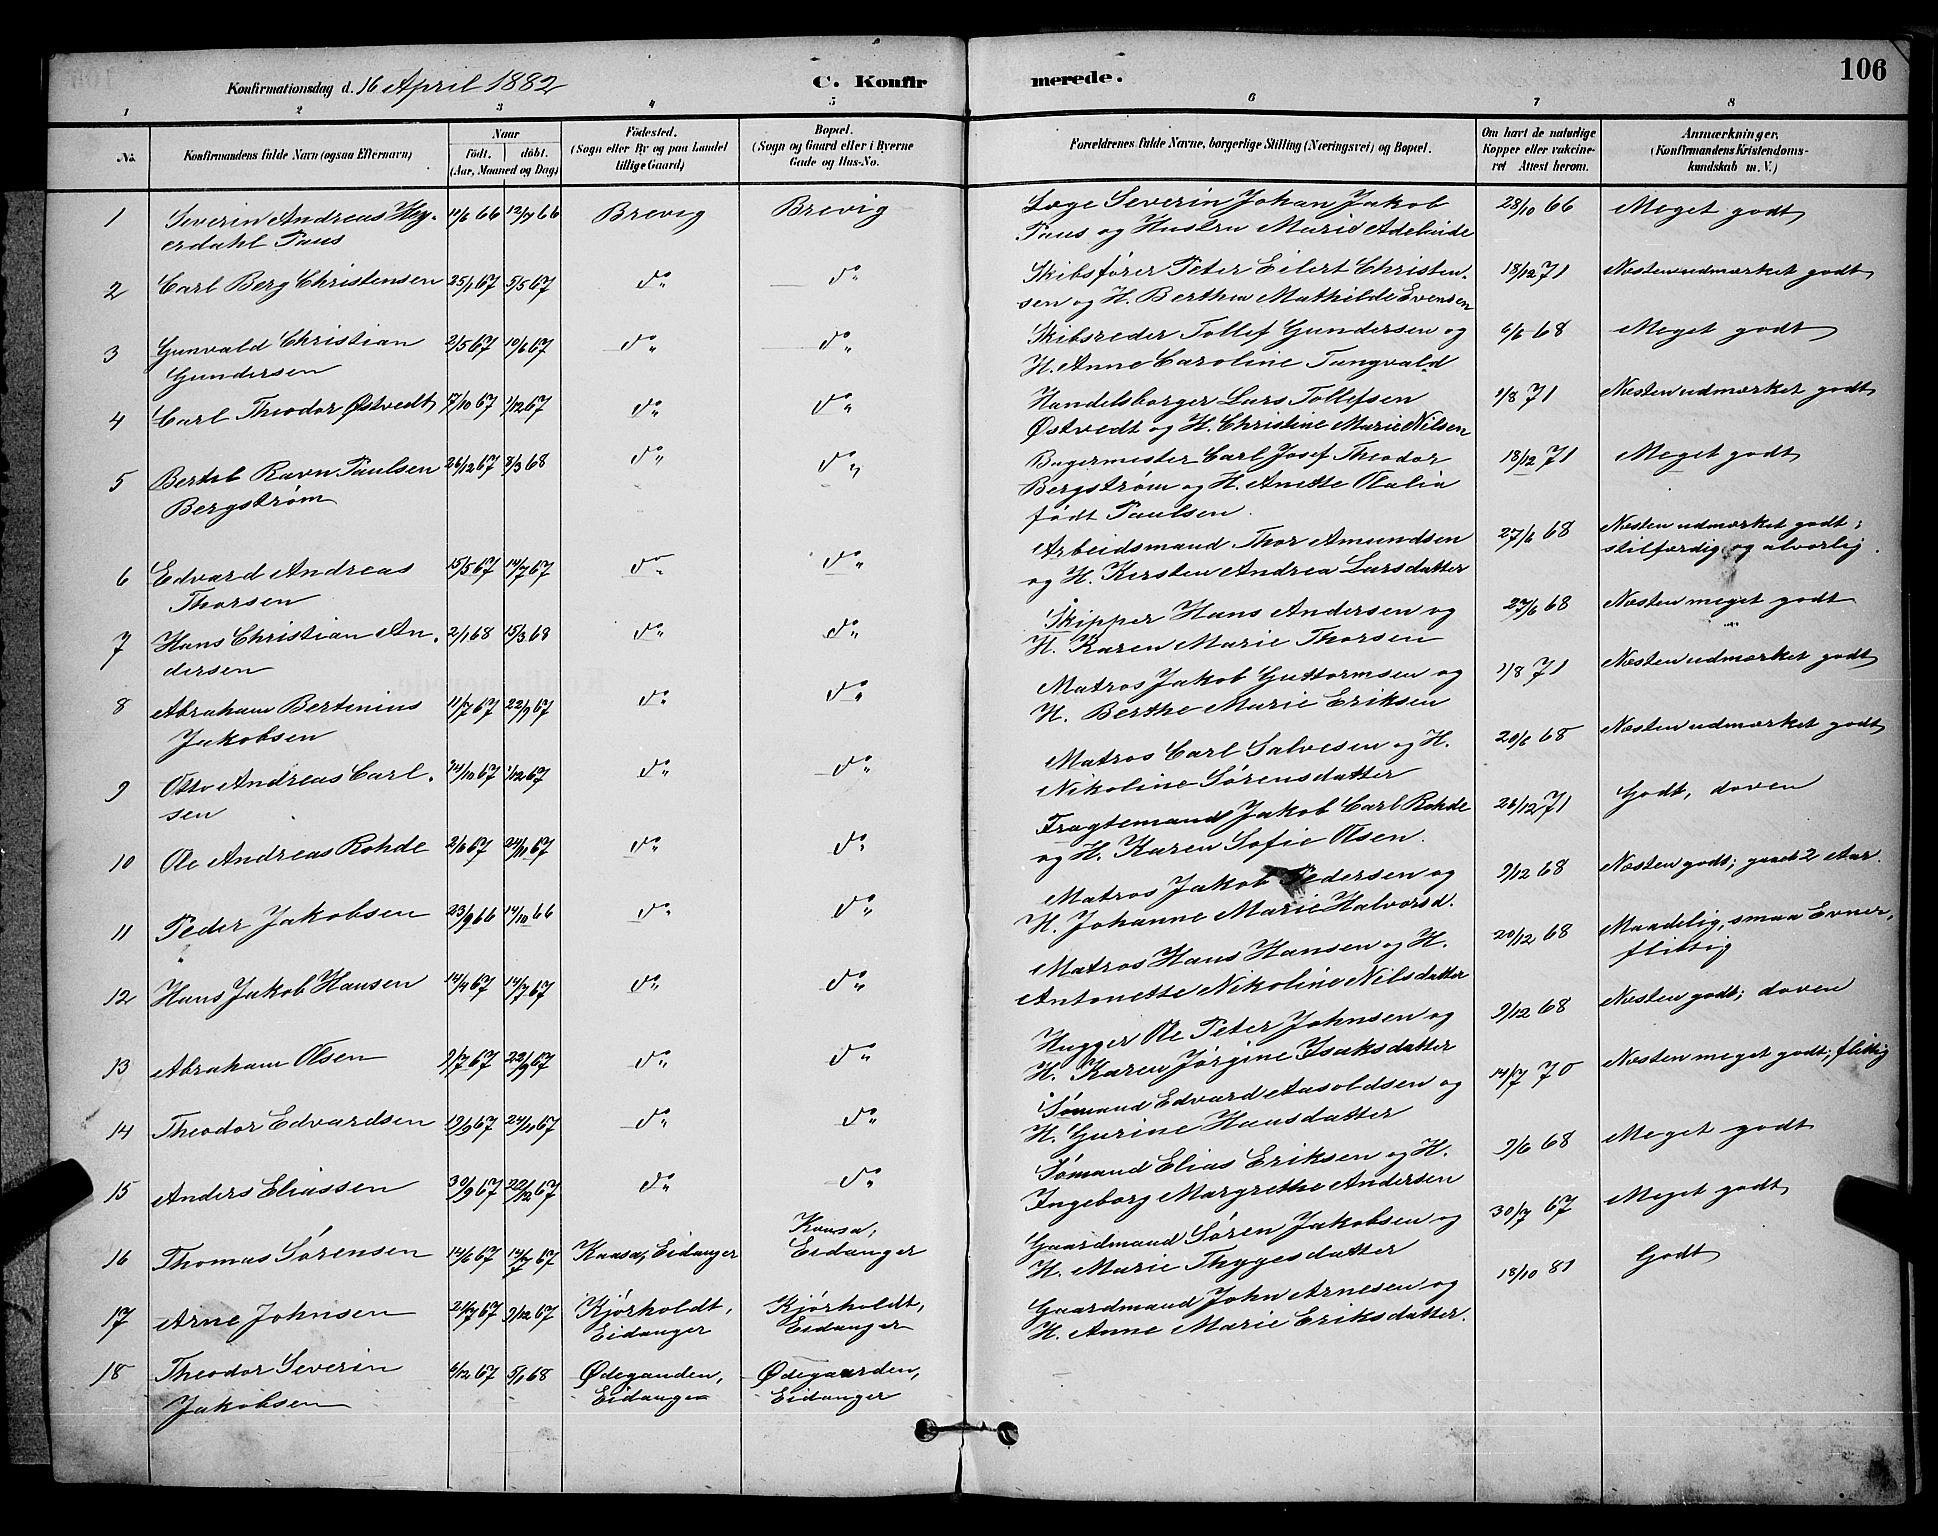 Konfirmationsdag d. 16 April 1882
C. Konfir
merede.
106
1 2 3 4 5 6 7 8
No.
Konfirmandens fulde Navn (ogsaa Efternavn)
Naar
födt. döbt.
(Aar, Maaned og Dag)
Födested.
(Sogn eller By og paa Landet
tillige Gaard)
Bopæl.
(Sogn og Gaard eller i Byerne
Gade og Hus-No.
Forældrenes fulde Navne, borgerlige Stilling (Næringsvei) og Bopæl.
Om havt de naturlige
Kopper eller vakcine-
ret Attest herom.
Anmærkninger.
(Konfirmandens Kristendoms-
kundskab m. V.)
1 Severin Andreas Hey-
erdahl Paus
11/6 66 12/7 66 Brevig Brevig
Læge Severin Johan Jakob
Paus og Hustru Marie Adelaide
28/10 66 Meget godt
2 Carl Berg Christensen 25/1 67 5/5 67 do do
Skibsfører Peter Eilert Christen-
sen og H. Berthea Mathilde Evensen
18/12 71 Næsten udmærket godt
3 Gunvald Christian
Gundersen
2/5 67 10/6 67 do do
Skibsreder Tollef Gundersen og
H. Anne Caroline Tangvald
6/6 68 Meget godt
4 Carl Theodor Østvedt 17/10 67 1/12 67 do do
Handelsborger Lars Tollefsen
Østvedt og H. Christine Marie Nilsen
1/8 71 Næsten udmærket godt
5 Bertel Ravn Paulsen
Bergstrøm
26/12 67 8/3 68 do do
Bagermester Carl Josef Theodor
Bergstrøm og H. Anette Olalia
født Paulsen.
18/12 71 Meget godt
6 Edvard Andreas
Thorsen
15/5 67 14/7 67 do do
Arbeidsmand Thor Amundsen
og H. Kirsten Andrea Larsdatter
27/6 68 Næsten udmærket godt;
stilfærdig og alvorlig.
7 Hans Christian An-
dersen
2/1 68 15/3 68 do do
Skipper Hans Andersen og
H. Karen Marie Thorsen
27/6 68 Næsten meget godt
8 Abraham Bertinius
Jakobsen
11/7 67 22/9 67 do do
Matros Jakob Guttormsen og
H. Berthe Marie Eriksen
1/8 71 Næsten udmærket godt
9 Otto Andreas Carl-
sen
14/10 67 1/12 67 do do
Matros Carl Salvesen og H.
Nikoline Sørensdatter
20/6 68 Næsten udmærket godt
10 Ole Andreas Rohde 2/6 67 24/11 67 do do
Fragtemand Jakob Carl Rohde
og H. Karen Sofie Olsen.
28/12 71 Godt, doven
11 Peder Jakobsen 23/9 66 14/10 66 do do
Matros Jakob Pedersen og
H. Johanne Marie Halvorsd.
9/12 68 Næsten godt; gaaet 2 Aar.
12 Hans Jakob Hansen 14/4 67 14/7 67 do do
Matros Hans Hansen og H.
Antonette Nikoline Nilsdatter
20/12 68 Maadelig, smaa Evner,
flittig
13 Abraham Olsen 9/7 67 22/9 67 do do
Hugger Ole Peter Johnsen og
H. Karen Jørgine Isaksdatter
9/12 68 Næsten godt; doven
14 Theodor Edvardsen 19/9 67 24/11 67 do do
Sømand Edvard Aasoldsen og
H. Gurine Hansdatter
14/7 70 Næsten meget godt; flittig
15 Anders Eliassen 30/9 67 22/12 67 do do
Sømand Elias Eriksen og H.
Ingeborg Margrethe Andersen
9/6 68 Meget godt
16 Thomas Sørensen 14/6 67 14/7 67 Kaasa, Eidanger
Kaasa,
Eidanger
Gaardmand Søren Jakobsen og
H. Marie Thygesdatter
30/7 67 Meget godt
17 Arne Johnsen 21/7 67 9/12 67 Kjørholdt,
Eidanger
Kjørholdt,
Eidanger
Gaardmand John Arnesen og
H. Anne Marie Eriksdatter.
18/10 81 Godt
18 Theodor Severin
Jakobsen
6/12 67 5/1 68 Ødeganden,
Eidanger
Ødegaarden,
Eidanger